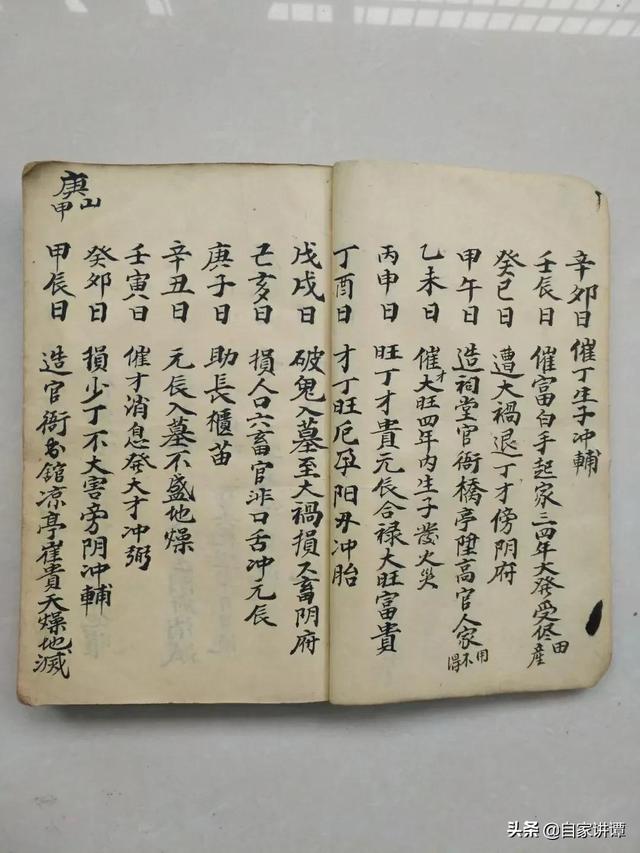 辛卯日 催丁生子冲輔
壬辰日 催富白手起家三四年大發受低田産
癸巳日 遭大禍退丁才傍阴府
甲午日 造祠堂官衙橋亭陞高官人家用不得
乙未日 催才大旺四年内生子發火災
丙申日 旺丁才貴元辰合禄大旺富貴
丁酉日 才丁旺厄孕阳冲胎
戊戌日 破鬼入墓至大禍損六畜阴府
己亥日 損人口六畜官非口舌冲元辰
庚子日 助長櫃苗
辛丑日 元辰入墓不盛地燥
壬寅日 催才消息發大才冲弼
癸卯日 損少丁不大害旁阴冲輔
甲辰日 造官衙書舘凉亭崔貴天燥地滅
庚山甲
头条 @自家讲谭